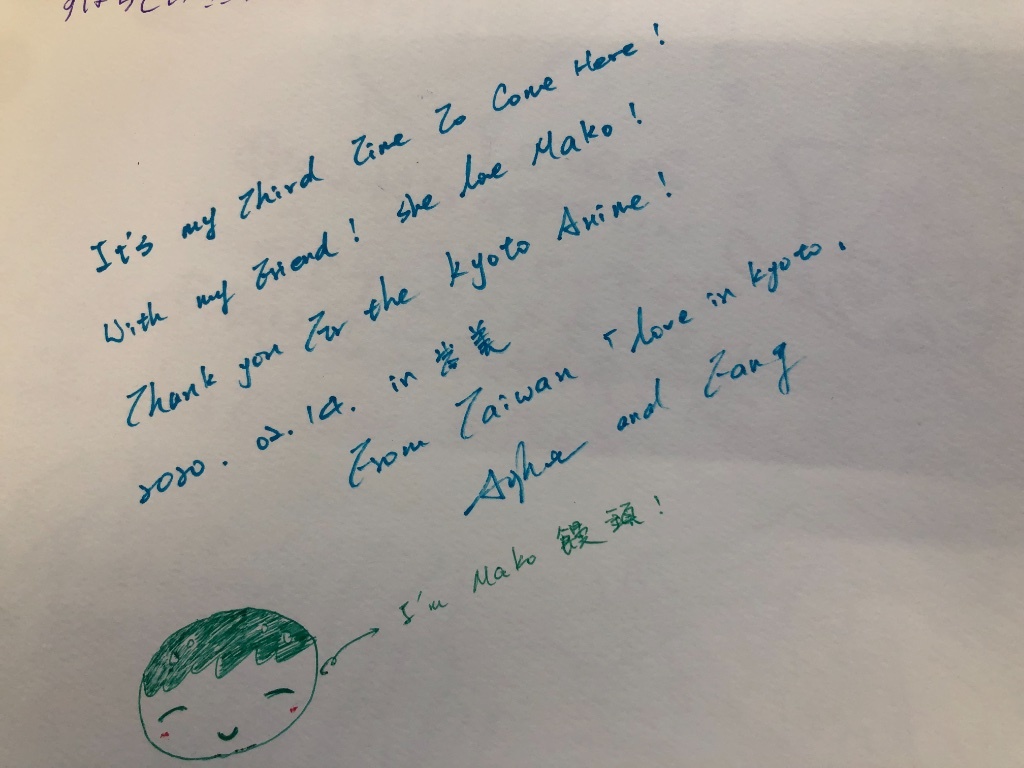 It's my Third Time To Come Here!
With my Friend! She love Mako!
Thank you For the Kyoto Anime!
2020. 02. 14. in 嵩義
From Taiwan 「love in kyoto.
and Fang
I'm Mako 饅頭!